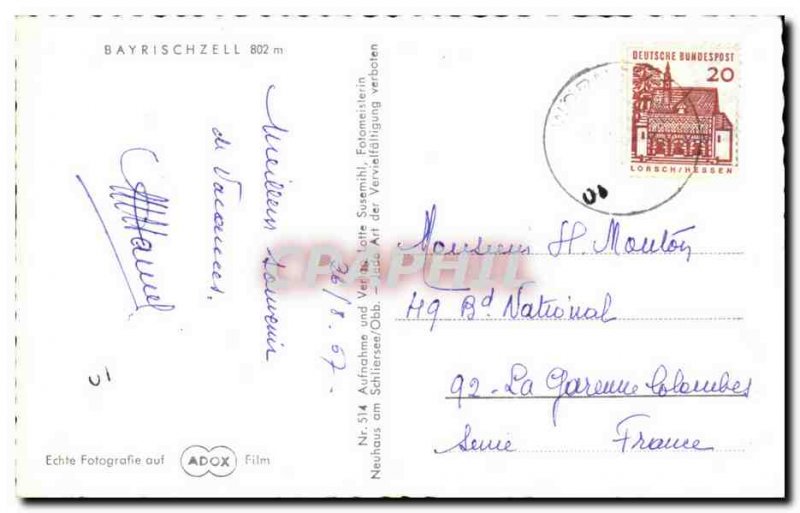 BAYRISCHZELL 802 m
26/8.67.
Meilleurs souvenirs
de Vacances.
Hamel
DEUTSCHE BUNDESPOST
20
LORSCH/HESSEN
01
Monsieur H. Mouton
49 Bd National
92 - La Garenne Colombes
Seine France
Nr. 514 Aufnahme und Verlag Lotte Susemihl, Fotomeisterin
Neuhaus am Schliersee/Obb. — Jede Art der Vervielfältigung verboten
CPAPHIL
01
Echte Fotografie auf ADOX Film